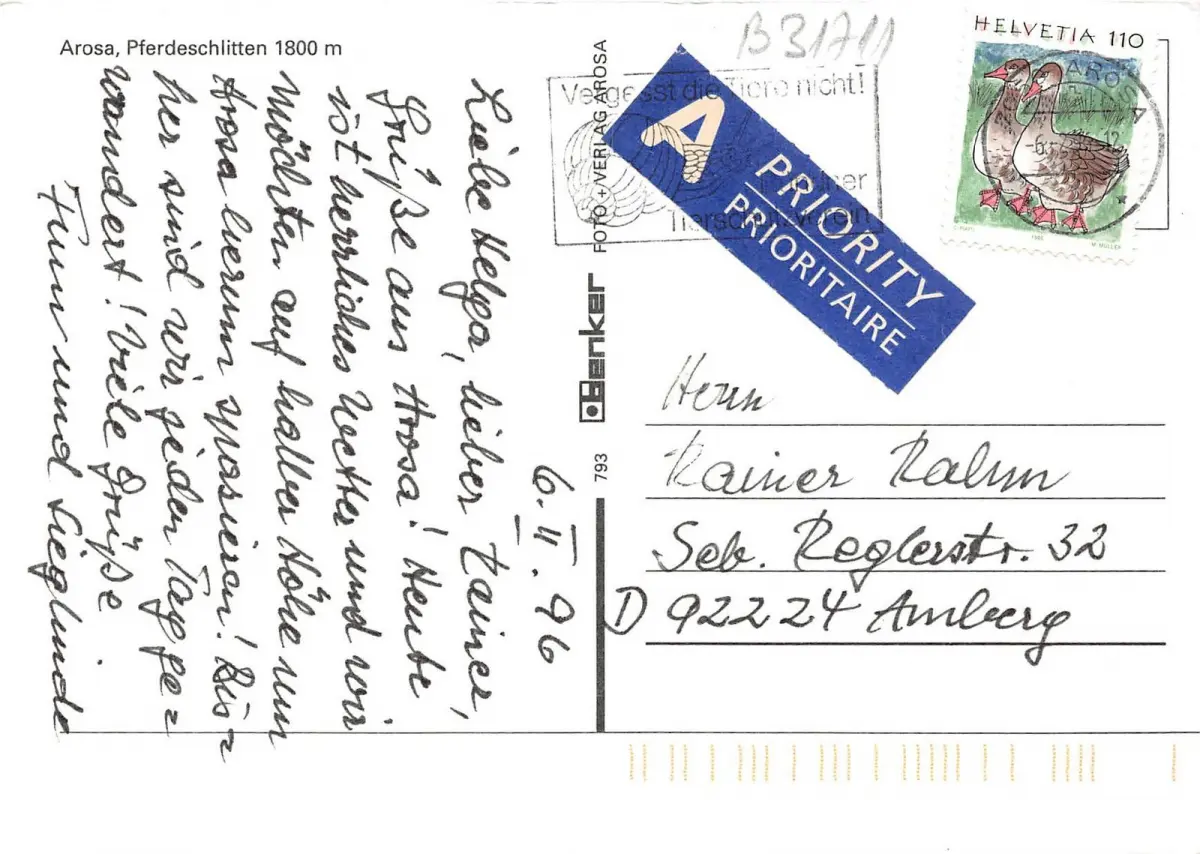 Arosa, Pferdeschlitten 1800 m
B 31711
HELVETIA 110
AROSA
-6.
12
1995
M. MÜLLER
Vergesst die Tiere nicht!
Tierschutzverein
A
PRIORITY
PRIORITAIRE
FOTO + VERLAG AROSA
Denker
793
6. II. 96
Liebe Helga, lieber Rainer,
Grüße aus Arosa! Heute
ist herrliches Wetter und wir
möchten auf halber Höhe um
Arosa herum spazieren! Bis=
her sind wir jeden Tag ge=
wandert! Viele Grüße
und Sieglinde
Herrn
Rainer Rahm
Seb. Reglerstr. 32
D 92224 Amberg